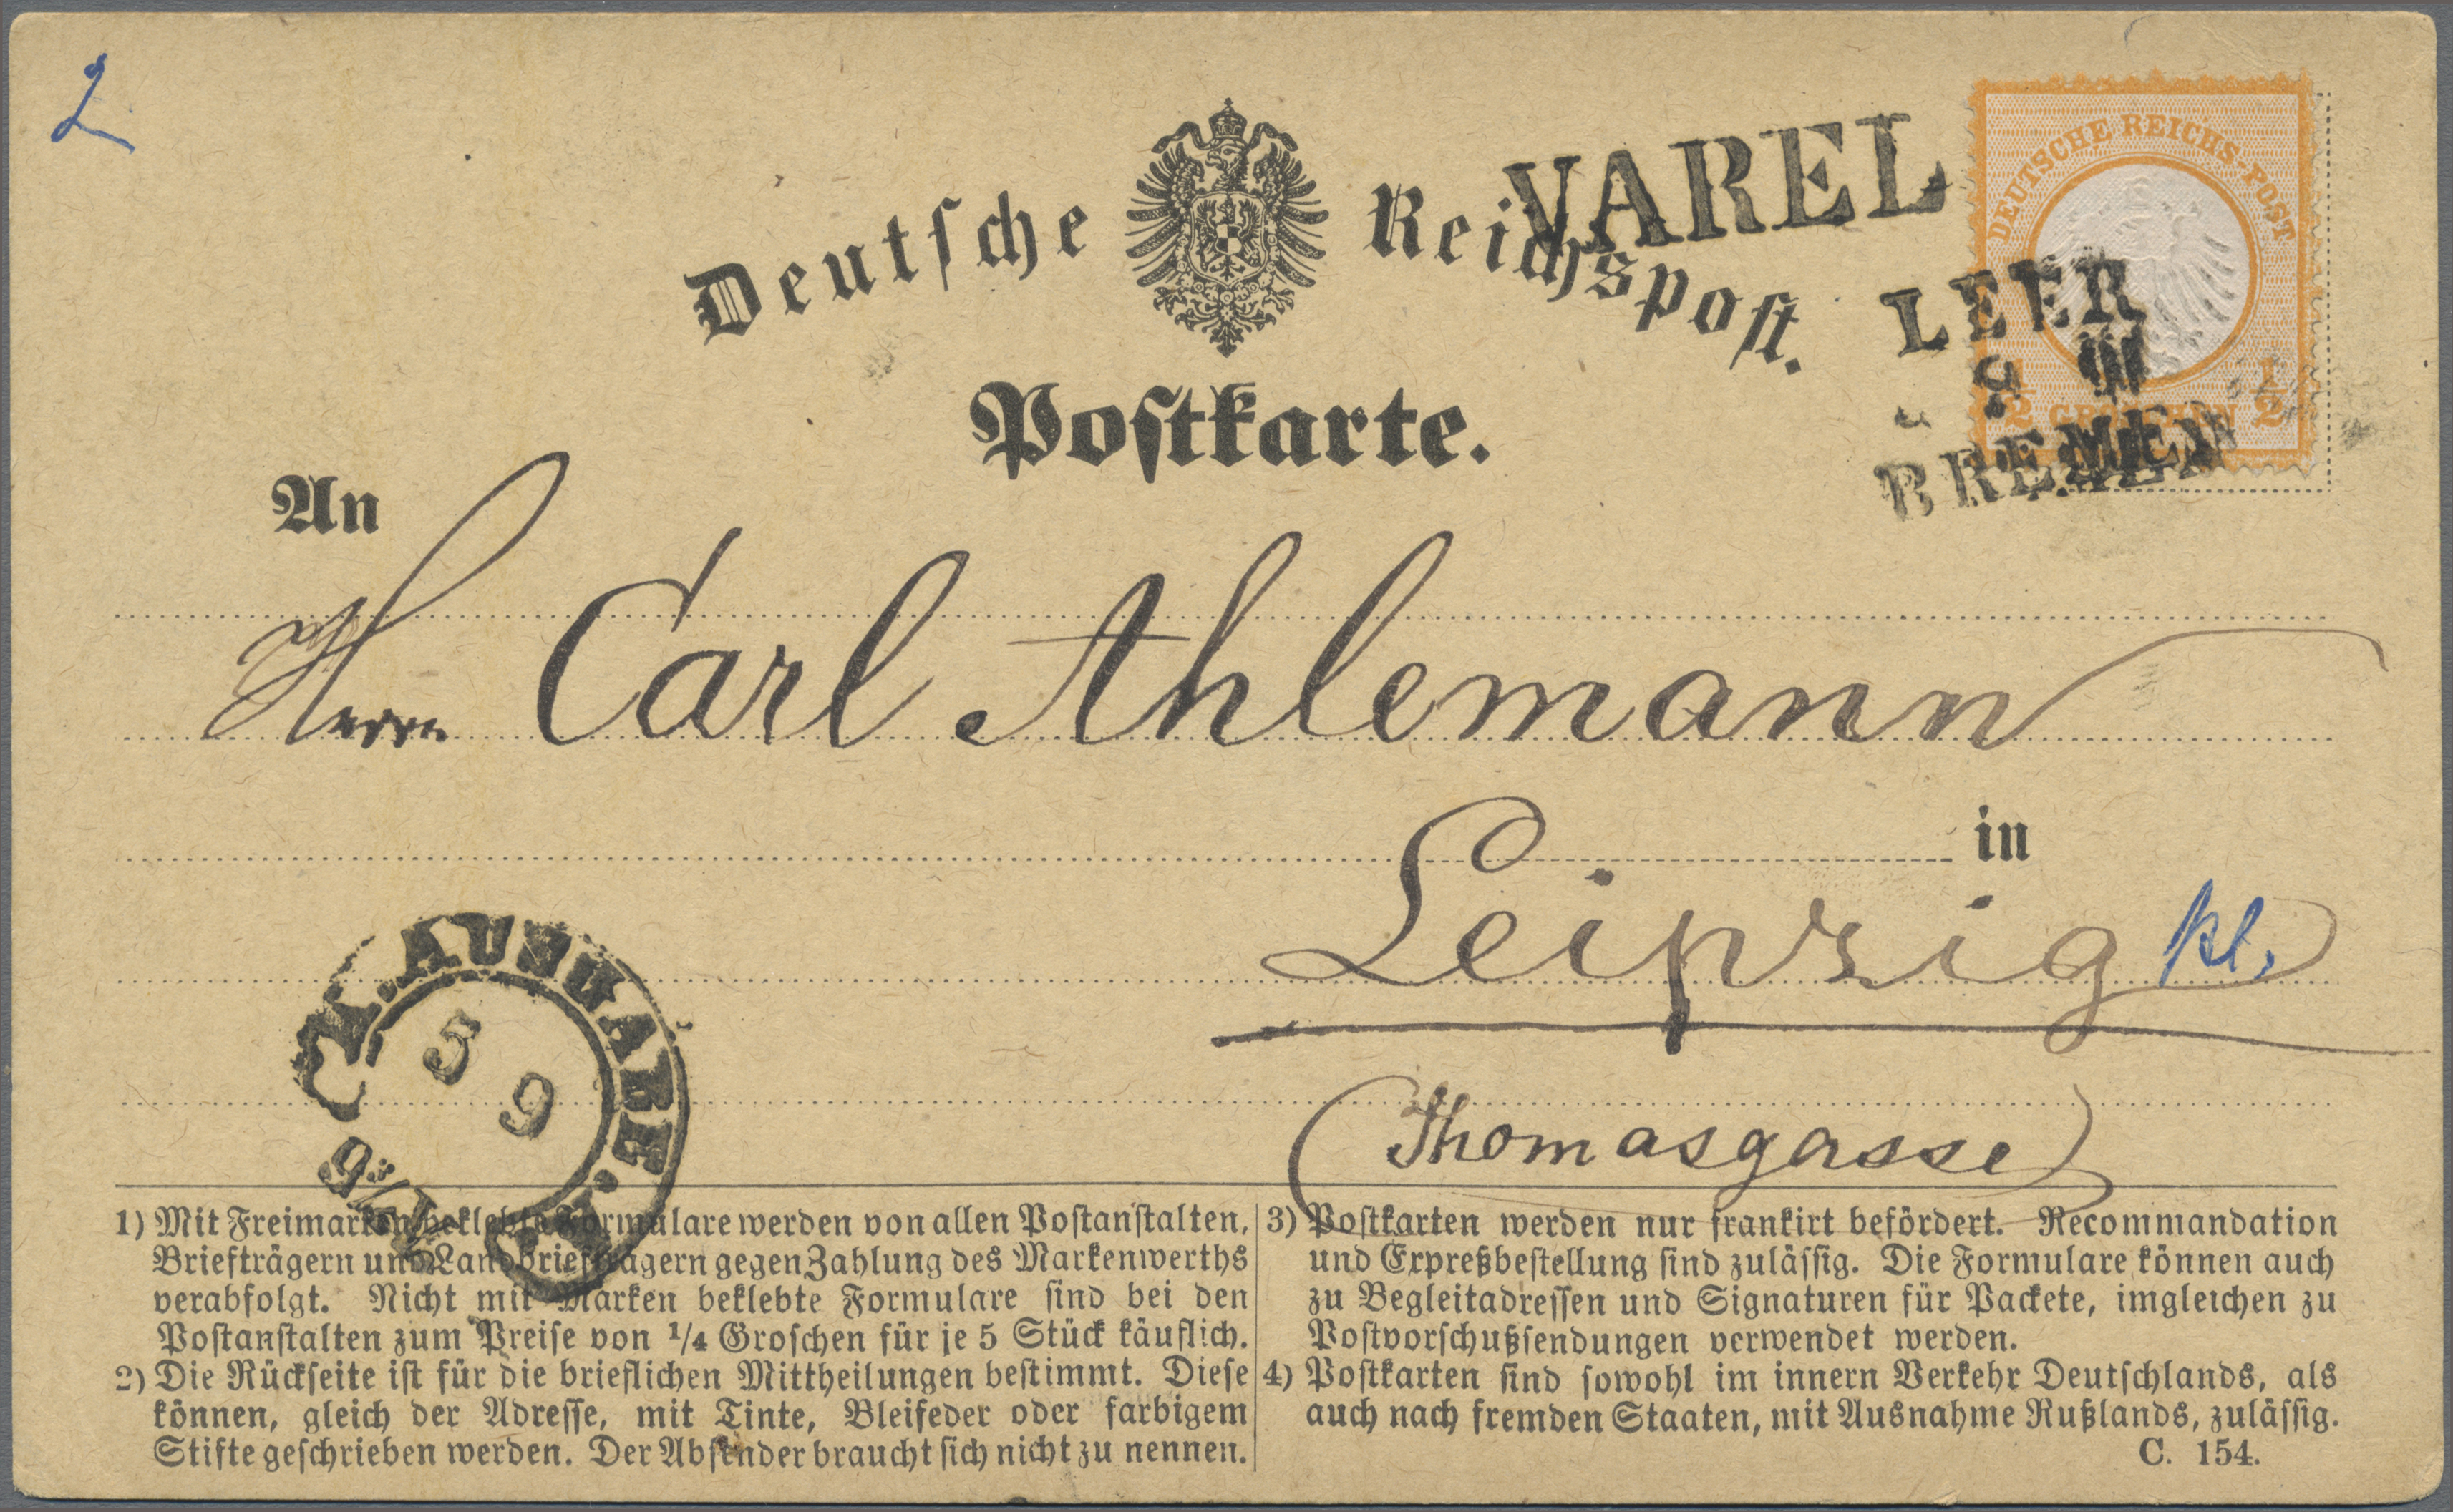 2
Deutsche Reichspost.
VAREL
DEUTSCHE REICHS-POST
1/2 GROSCHEN 1/2
LEER
BREMEN
Postkarte.
An
Herrn Carl Ahlemann
in
Leipzig
(Thomasgasse)
AUSGABE.
5
9
1) Mit Freimarken beklebte Formulare werden von allen Postanstalten,
Briefträgern und Landbriefträgern gegen Zahlung des Markenwerths
verabfolgt. Nicht mit Marken beklebte Formulare sind bei den
Postanstalten zum Preise von 1/4 Groschen für je 5 Stück käuflich.
2) Die Rückseite ist für die brieflichen Mittheilungen bestimmt. Diese
können, gleich der Adresse, mit Tinte, Bleifeder oder farbigem
Stifte geschrieben werden. Der Absender braucht sich nicht zu nennen.
3) Postkarten werden nur frankirt befördert. Recommandation
und Expreßbestellung sind zulässig. Die Formulare können auch
zu Begleitadressen und Signaturen für Packete, imgleichen zu
Postvorschußsendungen verwendet werden.
4) Postkarten sind sowohl im innern Verkehr Deutschlands, als
auch nach fremden Staaten, mit Ausnahme Rußlands, zulässig.
C. 154.